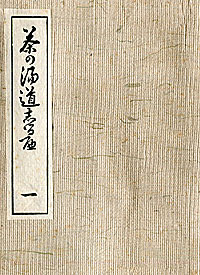 茶の湯道志るべ
一